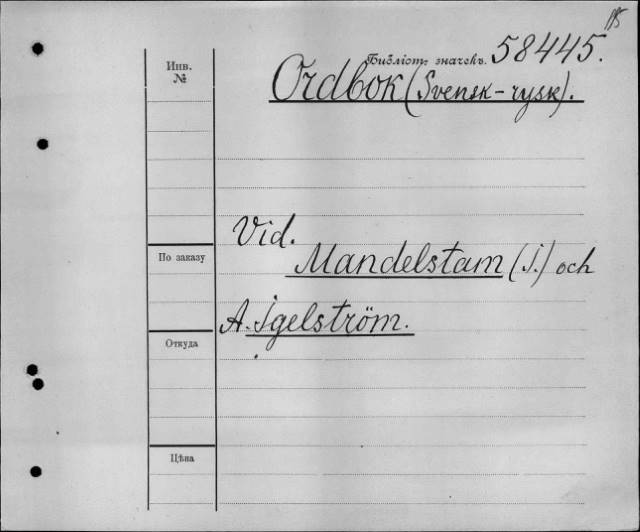 Библіот. значекъ. 58445.
Инв.
№
Ordbok (Svensk-rysk).
Vid.
По заказу
Mandelstam (J.) och
A. Igelström.
Откуда
Цѣна